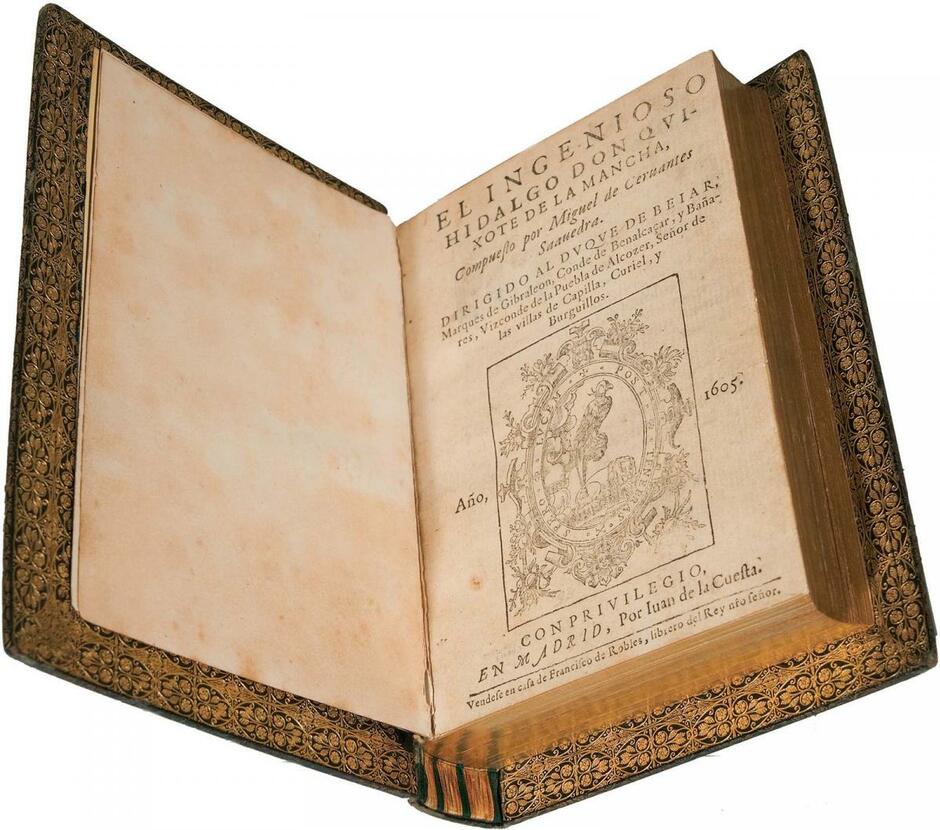 EL INGENIOSO
HIDALGO DON QVI-
XOTE DE LA MANCHA,
Compuesto por Miguel de Ceruantes
Saauedra.
DIRIGIDO AL DVQVE DE BEIAR,
Marques de Gibraleon, Conde de Benalcaçar, y Baña-
res, Vizconde de la Puebla de Alcozer, Señor de
las villas de Capilla, Curiel, y
Burguillos.
POS
Año, 1605.
CON PRIVILEGIO,
EN MADRID, Por Iuan de la Cuesta.
Vendese en casa de Francisco de Robles, librero del Rey nro señor.